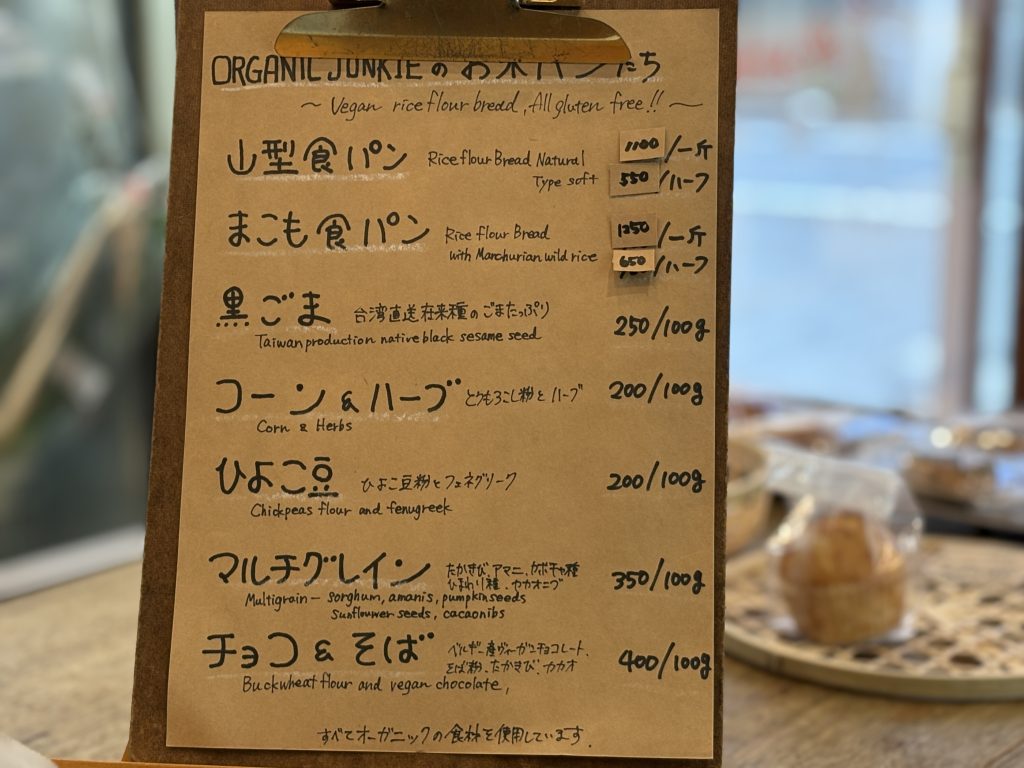 ORGANIC JUNKIEの お米パンたち
〜 Vegan rice flour bread, All gluten free!! 〜
山型食パン Rice flour Bread Natural 1100/一斤
Type soft 550/ハーフ
まこも食パン Rice flour Bread 1250/一斤
with Manchurian wild rice 650/ハーフ
黒ごま 台湾直送在来種のごまたっぷり 250/100g
Taiwan production native black sesame seed
コーン&ハーブ とうもろこし粉とハーブ 200/100g
Corn & Herbs
ひよこ豆 ひよこ豆粉とフェネグリーク 200/100g
Chickpeas flour and fenugreek
マルチグレイン たかきび、アマニ、カボチャ種 350/100g
ひまわり種、カカオニブ
Multigrain – sorghum, amanis, pumpkin seeds
Sunflower seeds, cacaonibs
チョコ&そば ベルギー産ヴィーガンチョコレート、 400/100g
そば粉、たかきび、カカオ
Buckwheat flour and vegan chocolate,
すべてオーガニックの食材を使用しています.